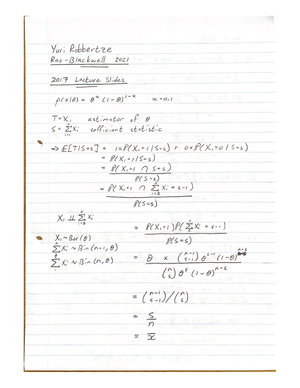 Yuri Robbertze
Rao-Blackwell 2021
2017 Lecture Slides
p(x|θ) = θ^x (1-θ)^(1-x) x=0,1
T=X₁ estimator of θ
S=∑Xi sufficient statistic
⇒ E[T|S=s] = 1×P(X₁=1|S=s) + 0×P(X₁=0|S=s)
= P(X₁=1|S=s)
= P(X₁=1 ∩ S=s) / P(S=s)
= P(X₁=1 ∩ ∑Xi = s-1) / P(S=s)
X₁ ⫫ ∑Xi
= P(X₁=1)P(∑Xi = s-1) / P(S=s)
X₁ ~ Ber(θ)
∑Xi ~ Bin(n-1, θ)
∑Xi ~ Bin(n, θ)
= θ × (n-1 s-1) θ^(s-1) (1-θ)^(n-s) / (n s) θ^s (1-θ)^(n-s)
= (n-1 s-1) / (n s)
= s/n
= x̄